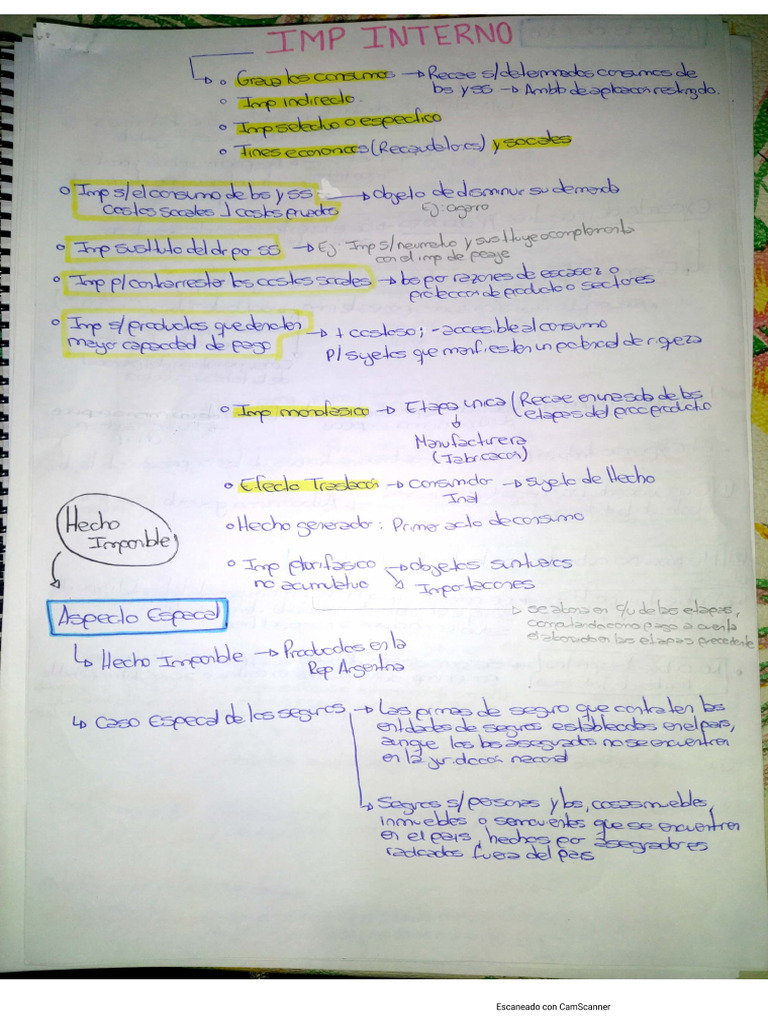 IMP INTERNO
↳ ○ Grava los consumos → Recae s/ determinados consumos de
bs y ss → Ambito de aplicacion restringido.
○ Imp indirecto.
○ Imp selectivo o especifico
○ Fines economicos (Recaudatorios) y sociales
○ Imp s/ el consumo de bs y ss → Objeto de disminuir su demanda
costos sociales ⊥ costos privados Ej: cigarro
○ Imp sustituto del dr por ss → Ej: Imp s/ neumatico y sustituye o complementa
con el imp de peaje
○ Imp p/ contrarrestar los costos sociales → bs por razones de escasez o
protección de producto o sectores
○ Imp s/ productos que denoten → + costoso; - accesible al consumo
mayor capacidad de pago P/ sujetos que manifiesten un potencial de riqueza
○ Imp monofásico → Etapa única (Recae en una sola de las
etapas del proc producto
↓
Manufacturera
(Fabricación)
○ Efecto Traslación → Consumidor → sujeto de Hecho
Inal
○ Hecho generador: Primer acto de consumo
Hecho
Imponible
○ Imp plurifasico → Objetos suntuarios
no acumulativo ↘ Importaciones
→ se abona en c/u de las etapas,
computando como pago a cuenta
el abonado en las etapas precedente
Aspecto Espacial
↳ Hecho Imponible → Producidos en la
Rep Argentina
↳ Caso Especial de los seguros → Las primas de seguro que contraten las
entidades de seguros establecidas en el país,
aunque los bs asegurados no se encuentren
en la juridiccion nacional
↳ Seguros s/ personas y bs, cosas muebles,
inmuebles o semovientes que se encuentren
en el pais, hechos por asegradores
radicados fuera del pais
Escaneado con CamScanner